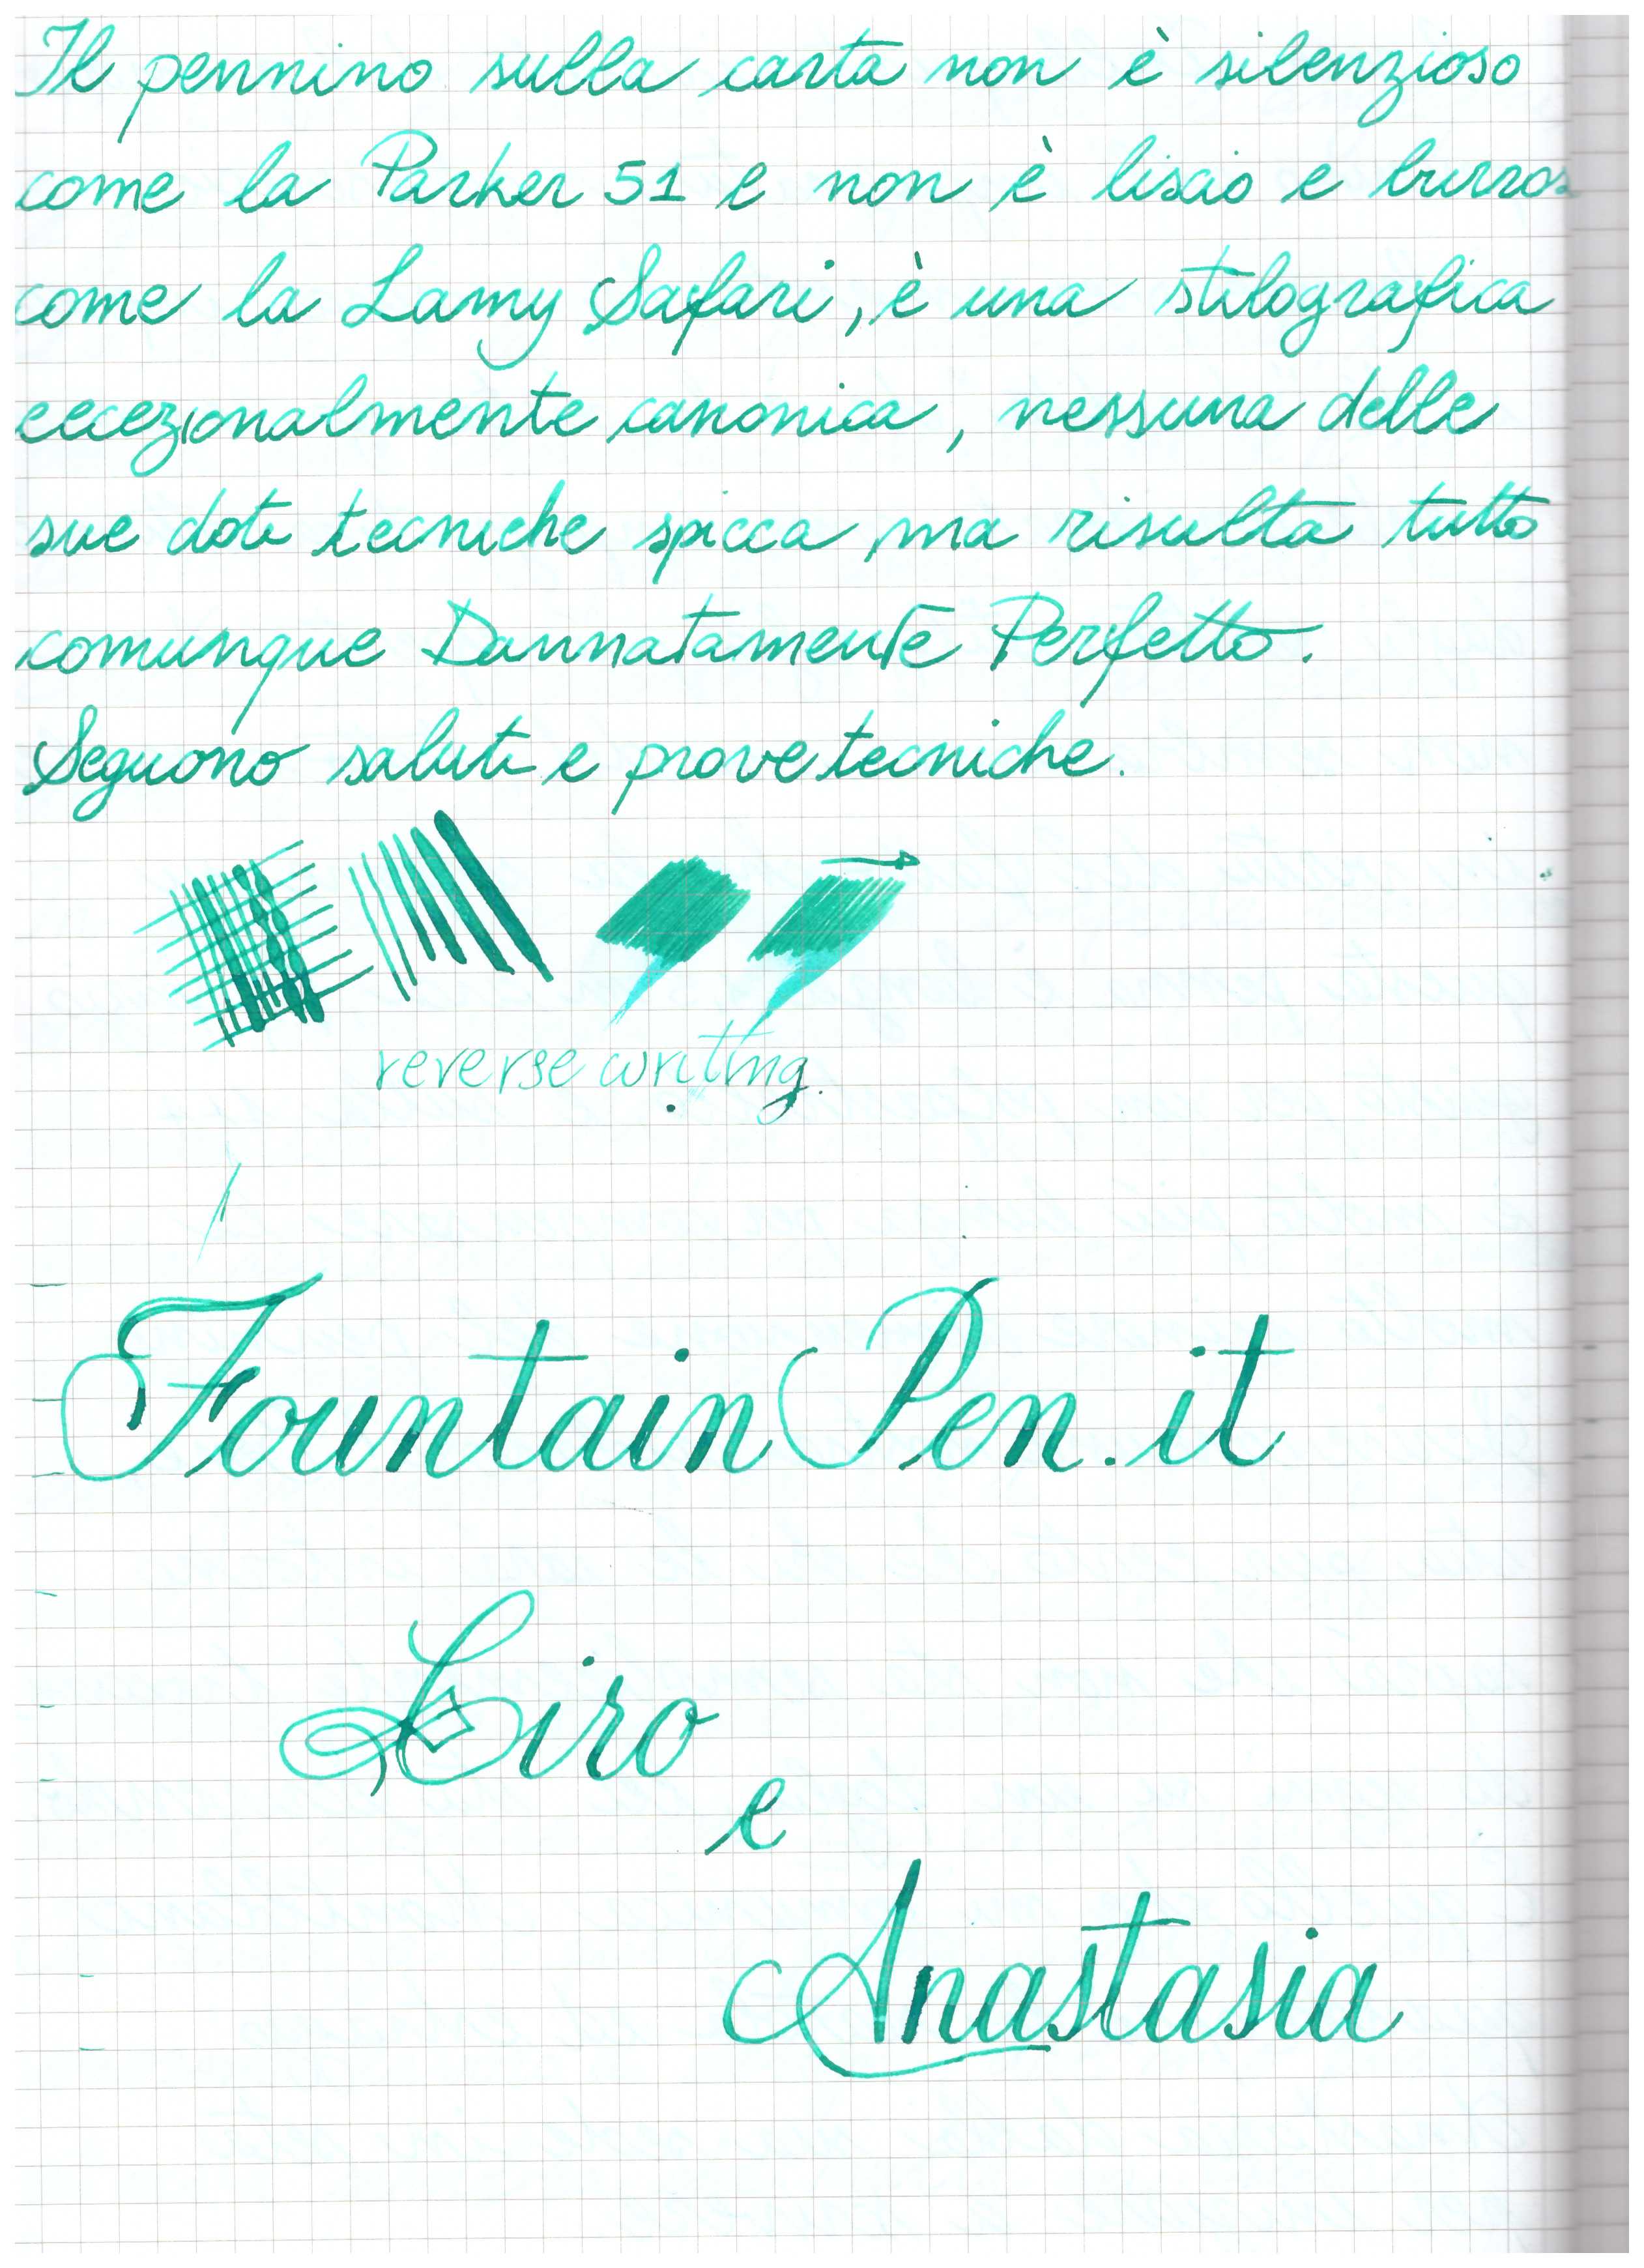 Il pennino sulla carta non è silenzioso
come la Parker 51 e non è liscio e burros
come la Lamy Safari, è una stilografica
eccezionalmente canonica, nessuna delle
sue doti tecniche spicca, ma risulta tutto
comunque Dannatamente Perfetto.
Seguono saluti e prove tecniche.
reverse writing.
FountainPen.it
Liro
e
Anastasia